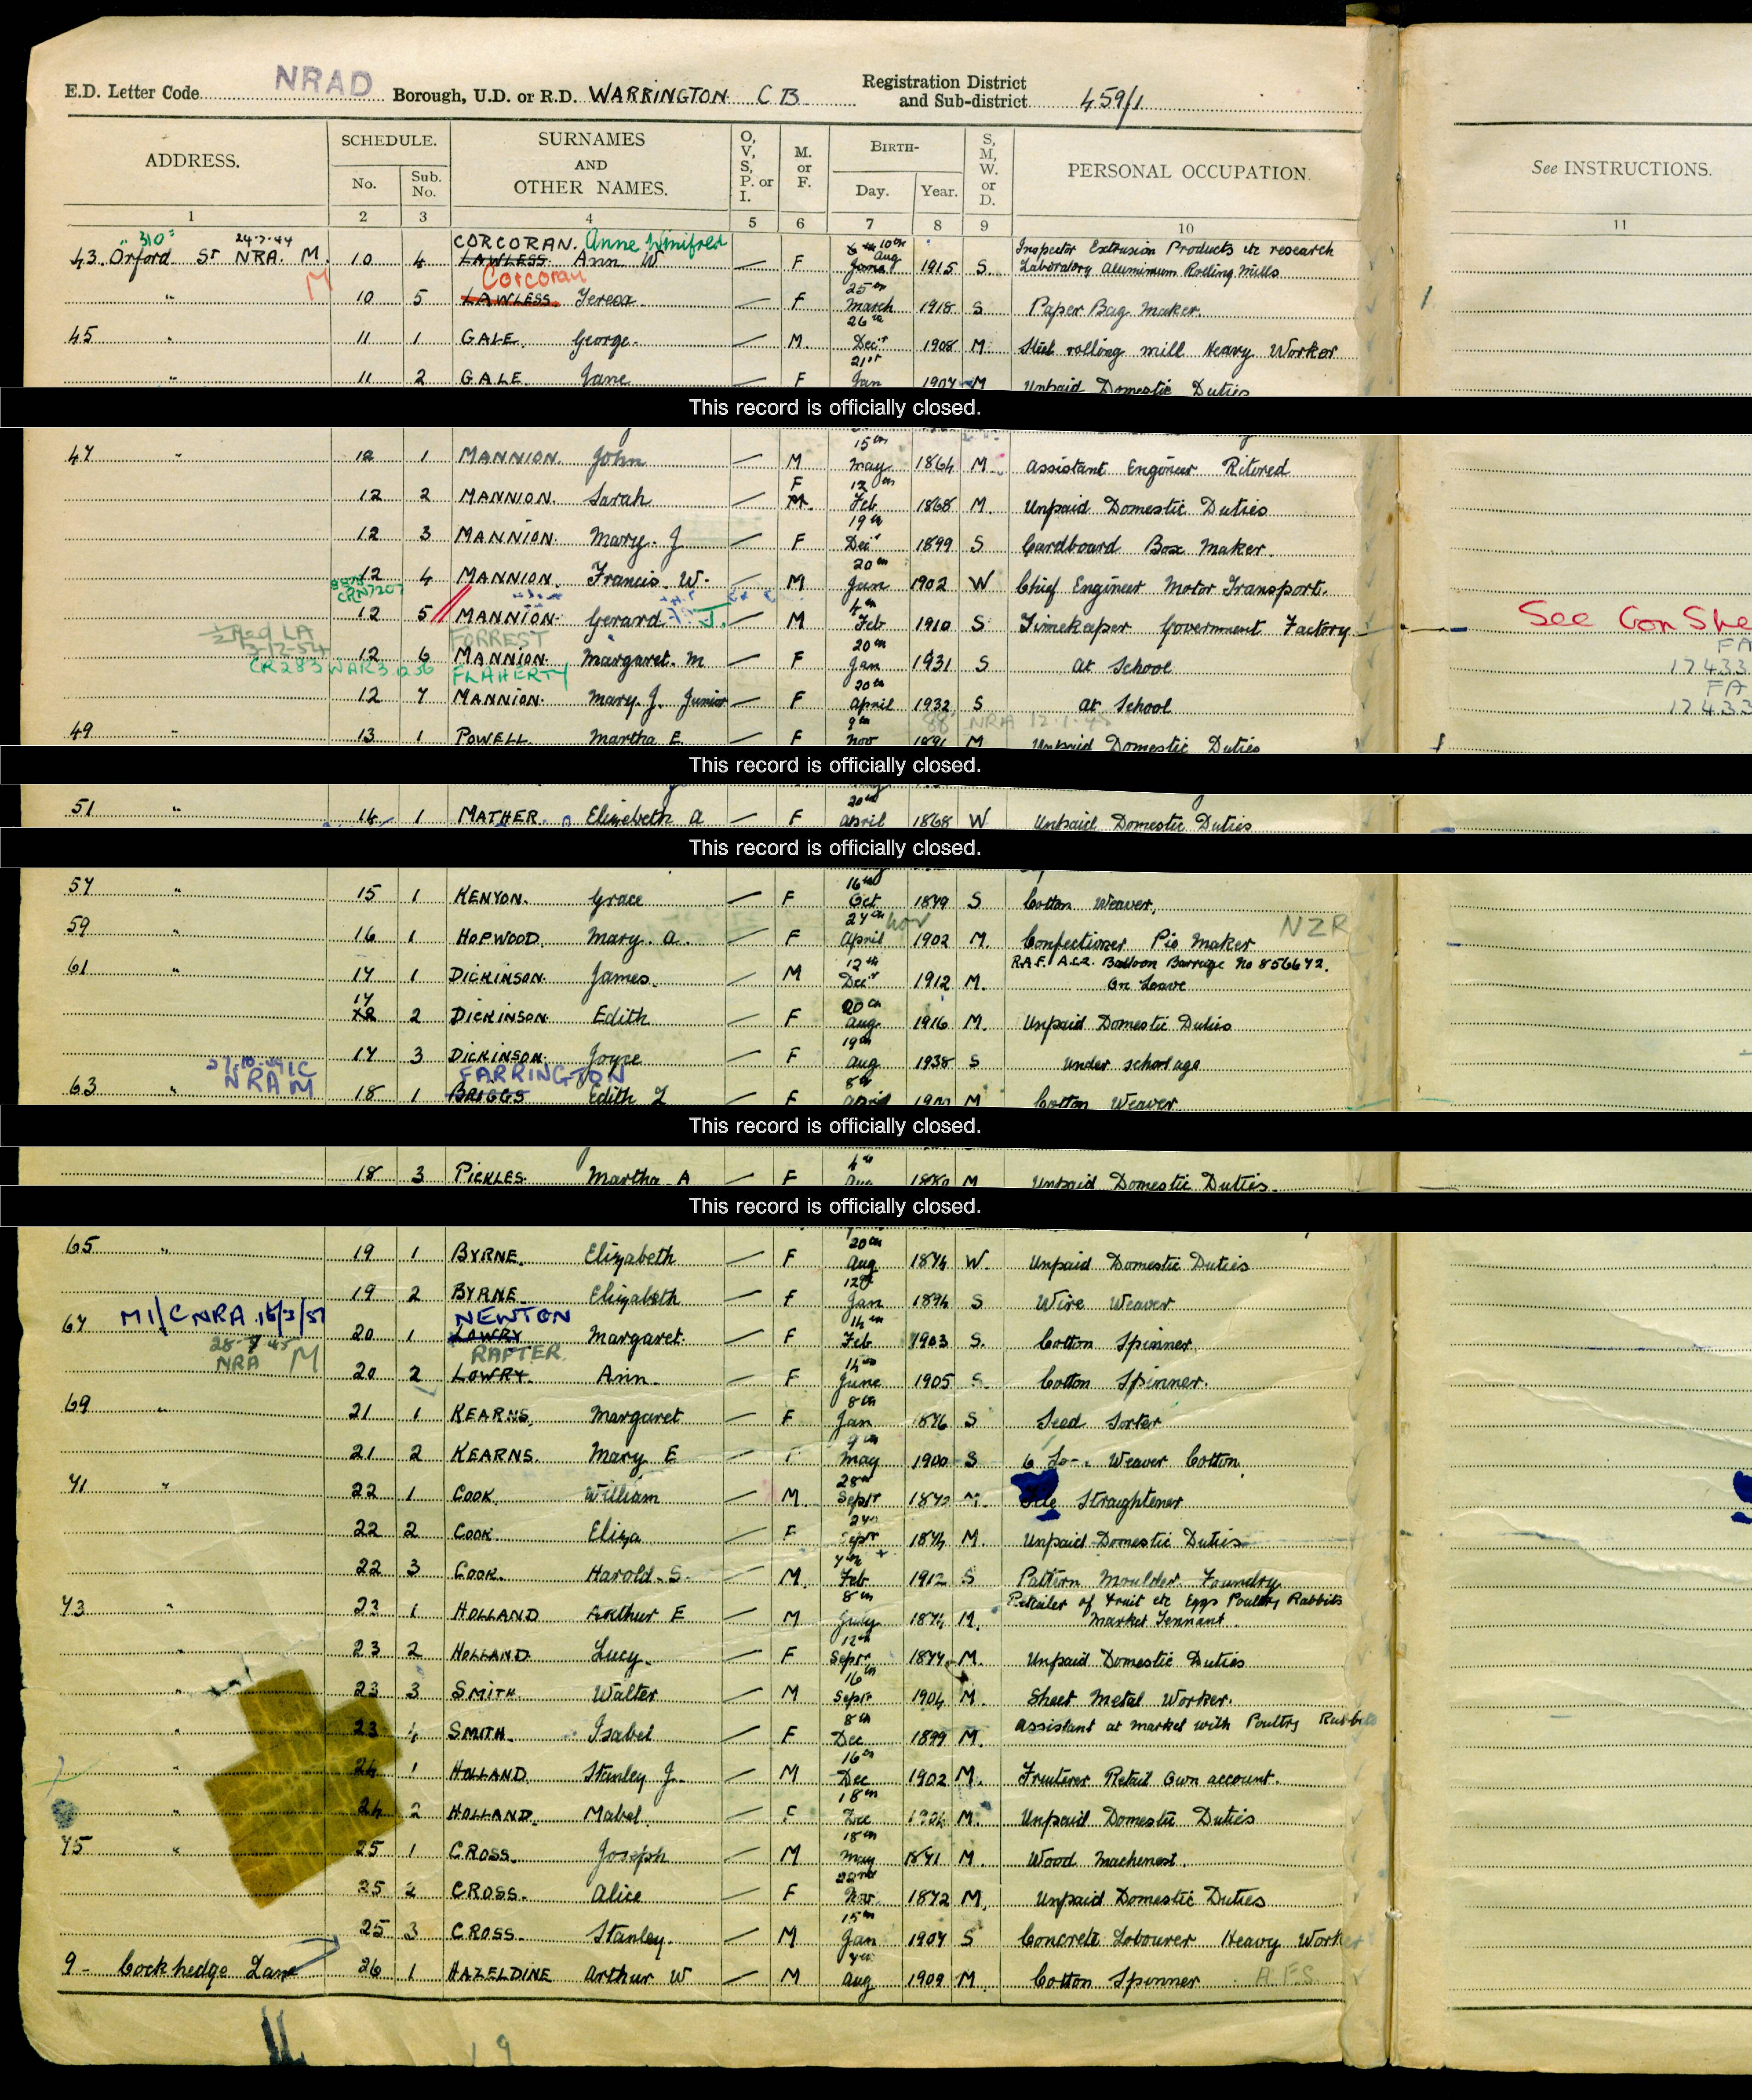 E.D. Letter Code NRAD Borough, U.D. or R.D. WARRINGTON C B Registration District and Sub-district 459/1
ADDRESS. SCHEDULE. No. Sub. No. SURNAMES AND OTHER NAMES. O, V, S, P. or I. M. or F. BIRTH- Day. Year. S, M, W. or D. PERSONAL OCCUPATION. See INSTRUCTIONS.
1 2 3 4 5 6 7 8 9 10 11
"310" 24.7.44 CORCORAN. Anne Winifred 10th Aug Inspector Extrusion Products etc research
43. Orford St NRA. M. 10 4 LAWLESS. Ann W — F June 1915 S. Laboratory Aluminimum Rolling Mills
M Corcoran 25th
" 10 5 LAWLESS. Teresa. — F March 1918 S Paper Bag Maker.
26th
45 " 11 1 GALE. George. — M. Decr 1908 M. Steel rolling mill Heavy Worker
21st
" 11 2 GALE. Jane — F Jan 1907 M Unpaid Domestic Duties
This record is officially closed.
15th
47 " 12 1 MANNION. John — M May 1864 M. Assistant Engineer Retired
F 12th
12 2 MANNION. Sarah — M. Feb 1868 M. Unpaid Domestic Duties
19th
12 3 MANNION. Mary. J — F Decr 1899 S Cardboard Box Maker.
20th
12 4 MANNION. Francis. W. — M Jun 1902 W Chief Engineer Motor Transport.
CRN7207 4th
12 5 MANNION. Gerard J. — M Feb 1910 S. Timekeeper Government Factory See Con She
Req LA 3-12-54 FORREST 20th FA
12 6 MANNION. Margaret. M — F Jan 1931 S at School 17433
CR283 WAR3 1256 FLAHERTY 20th FA
12 7 MANNION. Mary. J. Junior — F April 1932 S at School 17433
9th NRA 12.1.45
49 " 13 1 POWELL. Martha E — F Nov 1891 M Unpaid Domestic Duties
This record is officially closed.
20th
51 " 14 1 MATHER. Elizebeth A — F April 1868 W Unpaid Domestic Duties
This record is officially closed.
16th
57 " 15 1 KENYON. Grace — F Oct 1879 S Cotton Weaver.
27th Nov NZR
59 " 16 1 HOPWOOD. Mary. A. — F April 1902 M. Confectioner Pie Maker
12th R.A.F. A.C.2. Balloon Barrage No 856672.
61 " 17 1 DICKINSON. James. — M Decr 1912 M. On Leave
17 20th
2 DICKINSON. Edith — F Aug. 1916 M. Unpaid Domestic Duties
19th
17 3 DICKINSON. Joyce — F Aug 1938 S Under school age
NRA M FARRINGTON 8th
63 " 18 1 BRIGGS Edith L — F April M Cotton Weaver.
This record is officially closed.
4th
18 3 PICKLES. Martha A — F Aug M Unpaid Domestic Duties.
This record is officially closed.
20th
65 " 19 1 BYRNE. Elizabeth — F Aug 1874 W. Unpaid Domestic Duties
12th
19 2 BYRNE. Elizabeth — F Jan 1894 S Wire Weaver
M1/CNRA. 16/3/51 NEWTON 14th
67 20 1 LOWRY Margaret. — F Feb 1903 S. Cotton Spinner.
28-7-45 NRA M RAFTER 14th
20 2 LOWRY. Ann. — F June 1905 S. Cotton Spinner.
8th
69 " 21 1 KEARNS. Margaret — F Jan 1876 S Seed Sorter
9th
21 2 KEARNS. Mary E — F May 1900 S Weaver Cotton.
28th
71 " 22 1 COOK. William — M. Septr 1872 M. Straightener
27
22 2 COOK. Eliza — F Septr 1874 M. Unpaid Domestic Duties
7th
22 3 COOK. Harold. S. — M. Feb 1912 S Pattern Moulder. Foundry
8th Retailer of Fruit etc Eggs Poultry Rabbits
73 " 23 1 HOLLAND Arthur E — M July 1874 M. Market Tennant.
12th
" 23 2 HOLLAND. Lucy. — F Septr 1877 M. Unpaid Domestic Duties
16th
" 23 3 SMITH. Walter — M Septr 1904 M. Sheet Metal Worker.
8th Assistant at market with Poultry Rabbits
" 23 4 SMITH. Isabel — F Dec 1899 M.
16th
" 24 1 HOLLAND. Stanley J. — M Dec 1902 M. Fruiterer Retail Own account.
18th
" 24 2 HOLLAND. Mabel. — F Dec 1904 M. Unpaid Domestic Duties
18th
75 " 25 1 CROSS. Joseph — M May 1871 M. Wood Machenest.
22nd
25 2 CROSS. Alice — F Nov 1872 M. Unpaid Domestic Duties
15th
25 3 CROSS. Stanley. — M Jan 1907 S Concrete Labourer Heavy Worker
7th
9 - Cockhedge Lane 26 1 HAZELDINE Arthur W — M Aug 1909 M. Cotton Spinner A.F.S.
19